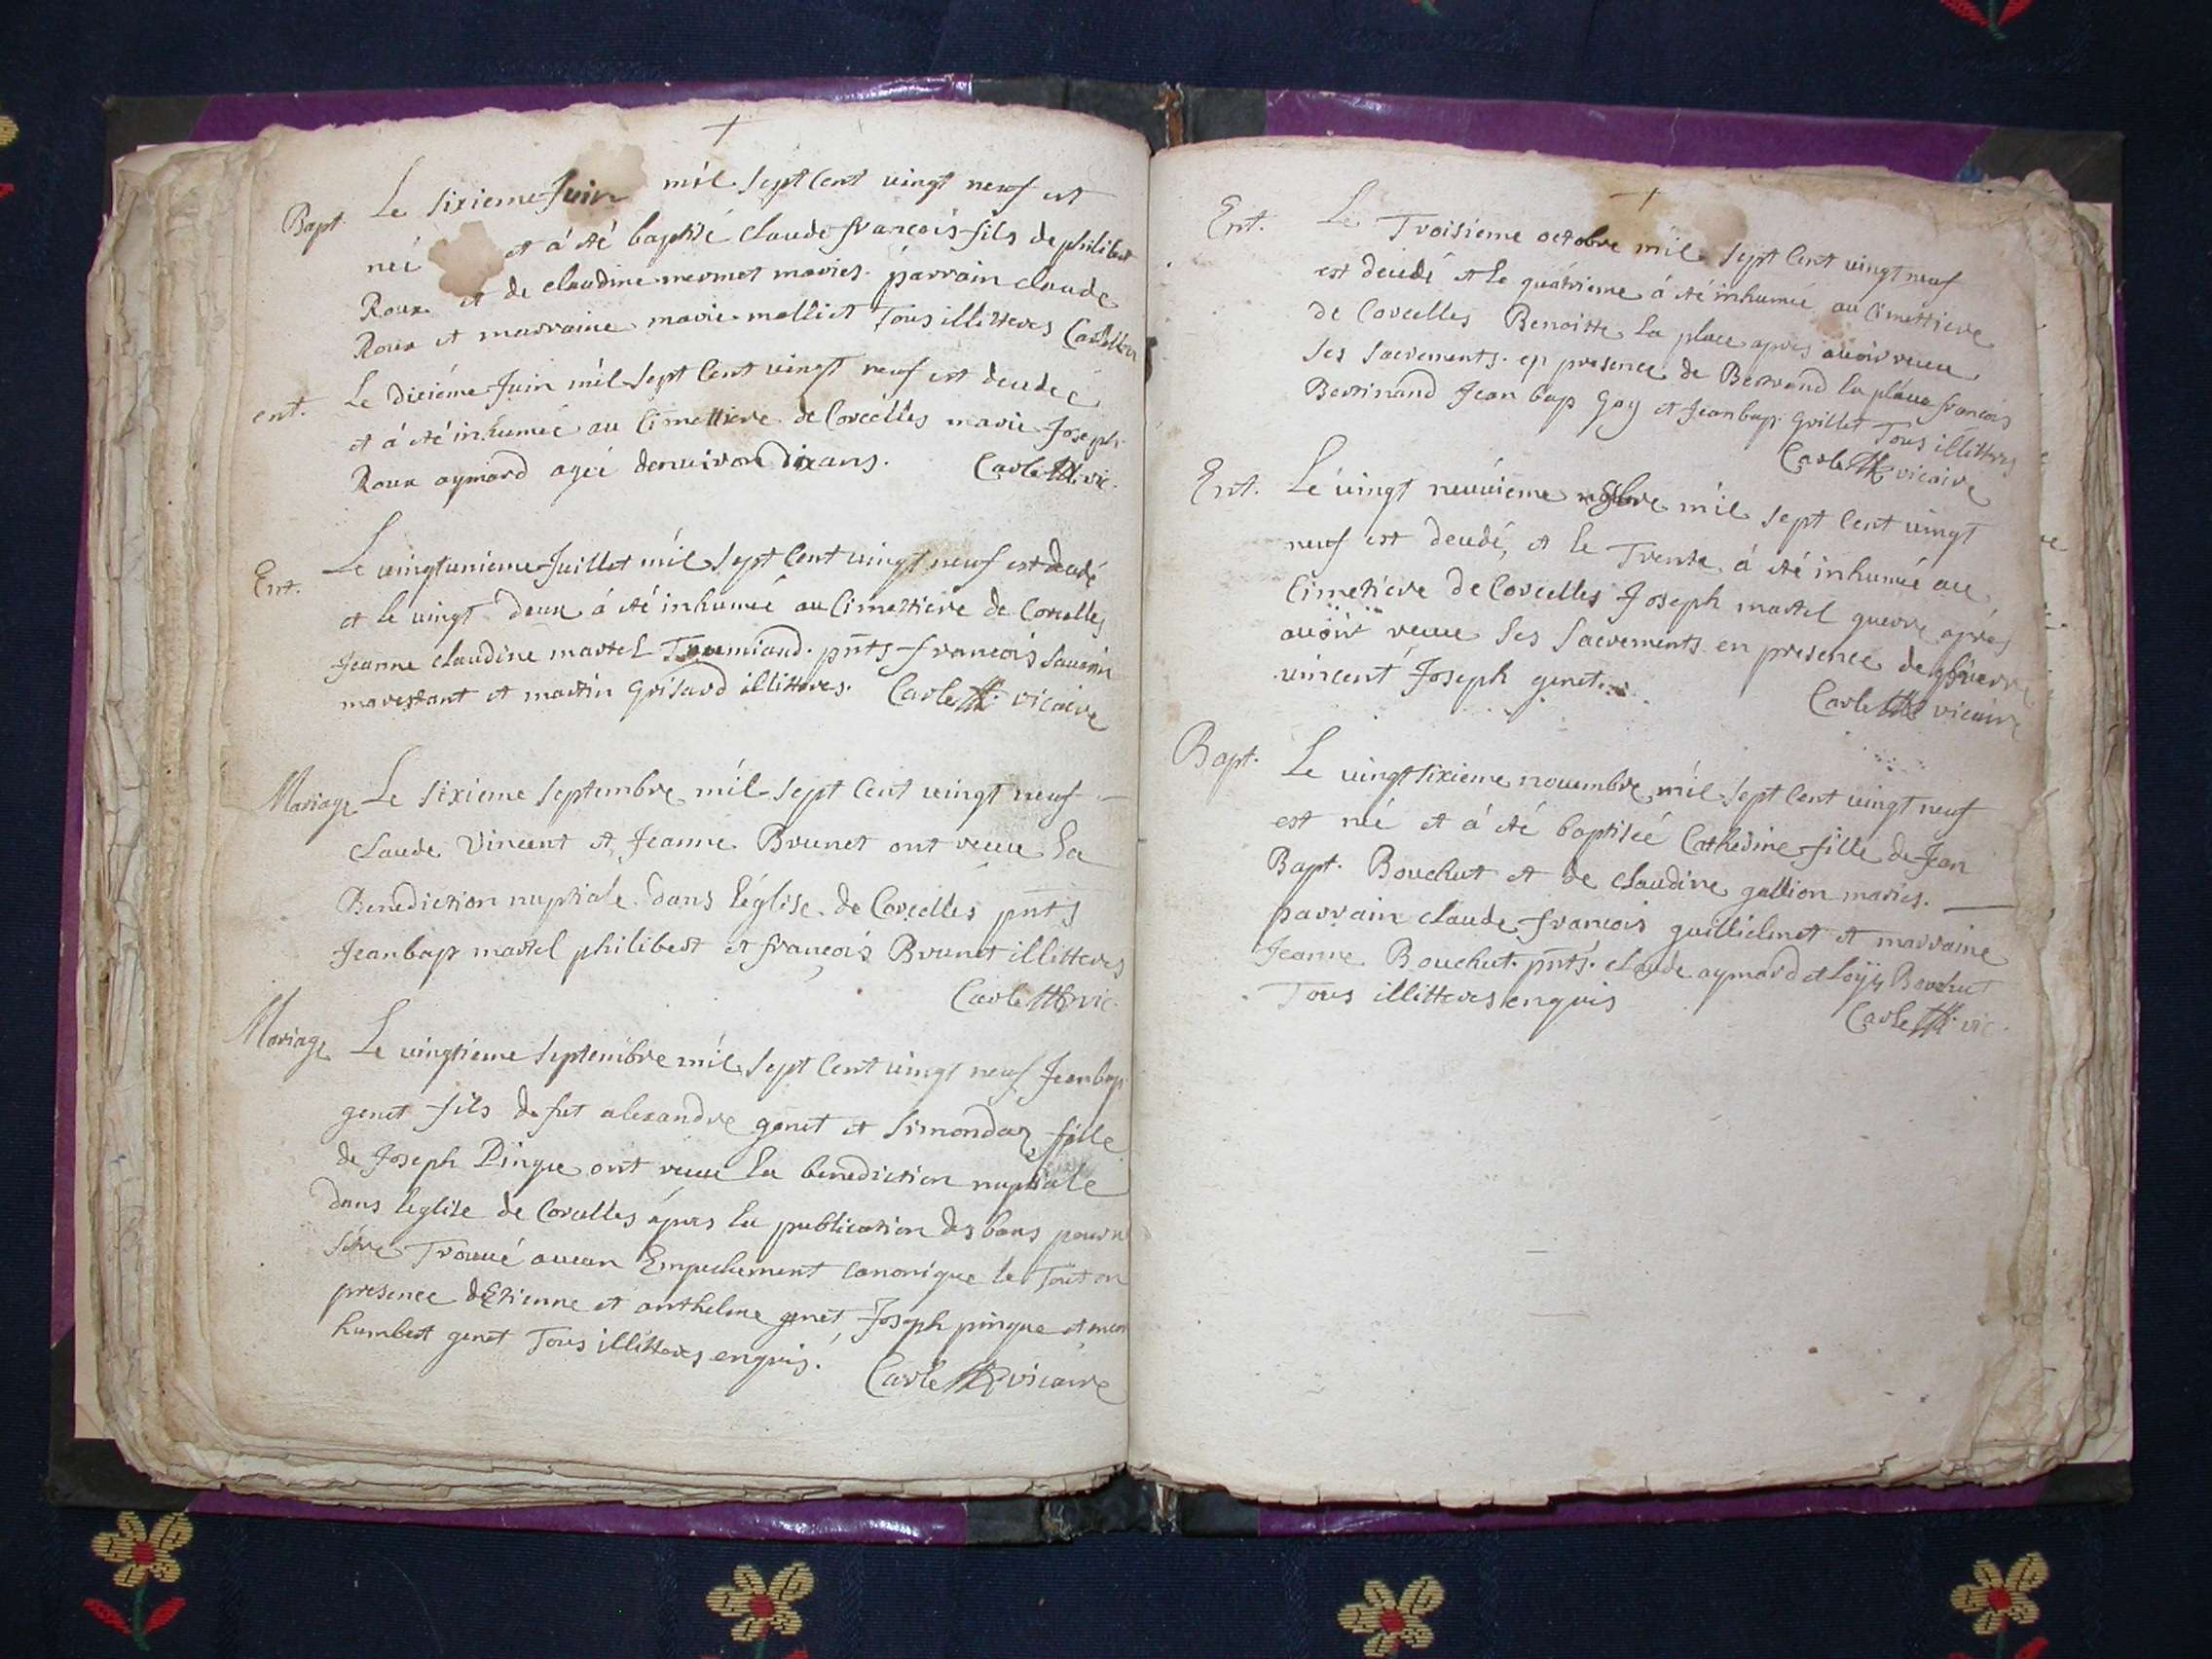 Bapt. Le sixieme Juin mil sept Cent vingt neuf est
néé et á été baptisé Claude françois fils de philibert
Roux et de claudine mermet mariés. parrain claude
Roux et marraine marie molliet Tous illitteres
ent. Le dixiéme Juin mil sept Cent vingt neuf est decedeé
et á été inhumeé au Cimettiere de Corcelles marie Joseph
Roux aymard ageé denuiron dix ans. Carle vic.
Ent. Le vingtunieme Juillet mil sept Cent vingt neuf est decedé
et le vingt deux á été inhumeé au Cimettiere de Corcelles
Jeanne claudine martel pnts françois
et martin Grisard illitteres. Carle vicaire
Mariage Le sixieme septembre mil sept Cent vingt neuf
Claude Vincent et Jeanne Brunet ont receu la
Benediction nuptiale dans léglise de Corcelles pnts
Jeanbap martel philibert et françois Brunet illitteres
Carle vic.
Mariage Le vingtieme septembre mil sept Cent vingt neuf Jeanbap
genet fils de fut alexandre genet et fille
de Joseph Pingue ont receu la benediction nuptiale
dans leglise de Corcelles ápres la publication des bans
Trouué aucun Empechement Canonique le Tout en
presence dEtienne et anthelme genet, Joseph pingue et
humbert genet Tous illitteres enquis. Carle vicaire
Ent. Le Troisieme octobre mil sept Cent vingt neuf
est decedé et le quátrieme á été inhumeé au Cimettiere
de Corcelles Benoitte la place apres auoir receu
ses sacrements. en presence de Bertrand la place françois
Bertinand Jean bap Gay et Jeanbap. Grillet Tous illitteres
Carle vicaire
Ent. Lé vingt neuuieme mil sept Cent vingt
neuf est decedé, et le Trente á été inhumeé au
Cimetiere de Corcelles Joseph martel guerre áprés
auoir receu ses sacrements en presence de
vincent Joseph genet
Carle vicaire
Bapt. Le vingt sixieme nouembre mil sept Cent vingt neuf
est née et á été baptiseé Catherine fille de Jean
Bapt. Bouchut et de Claudine gallion mariés.
parrain claude françois guillielmet et marraine
Jeanne Bouchut. pnts. claude aymard et Bouchut
Tous illitteres enquis
Carle vic.